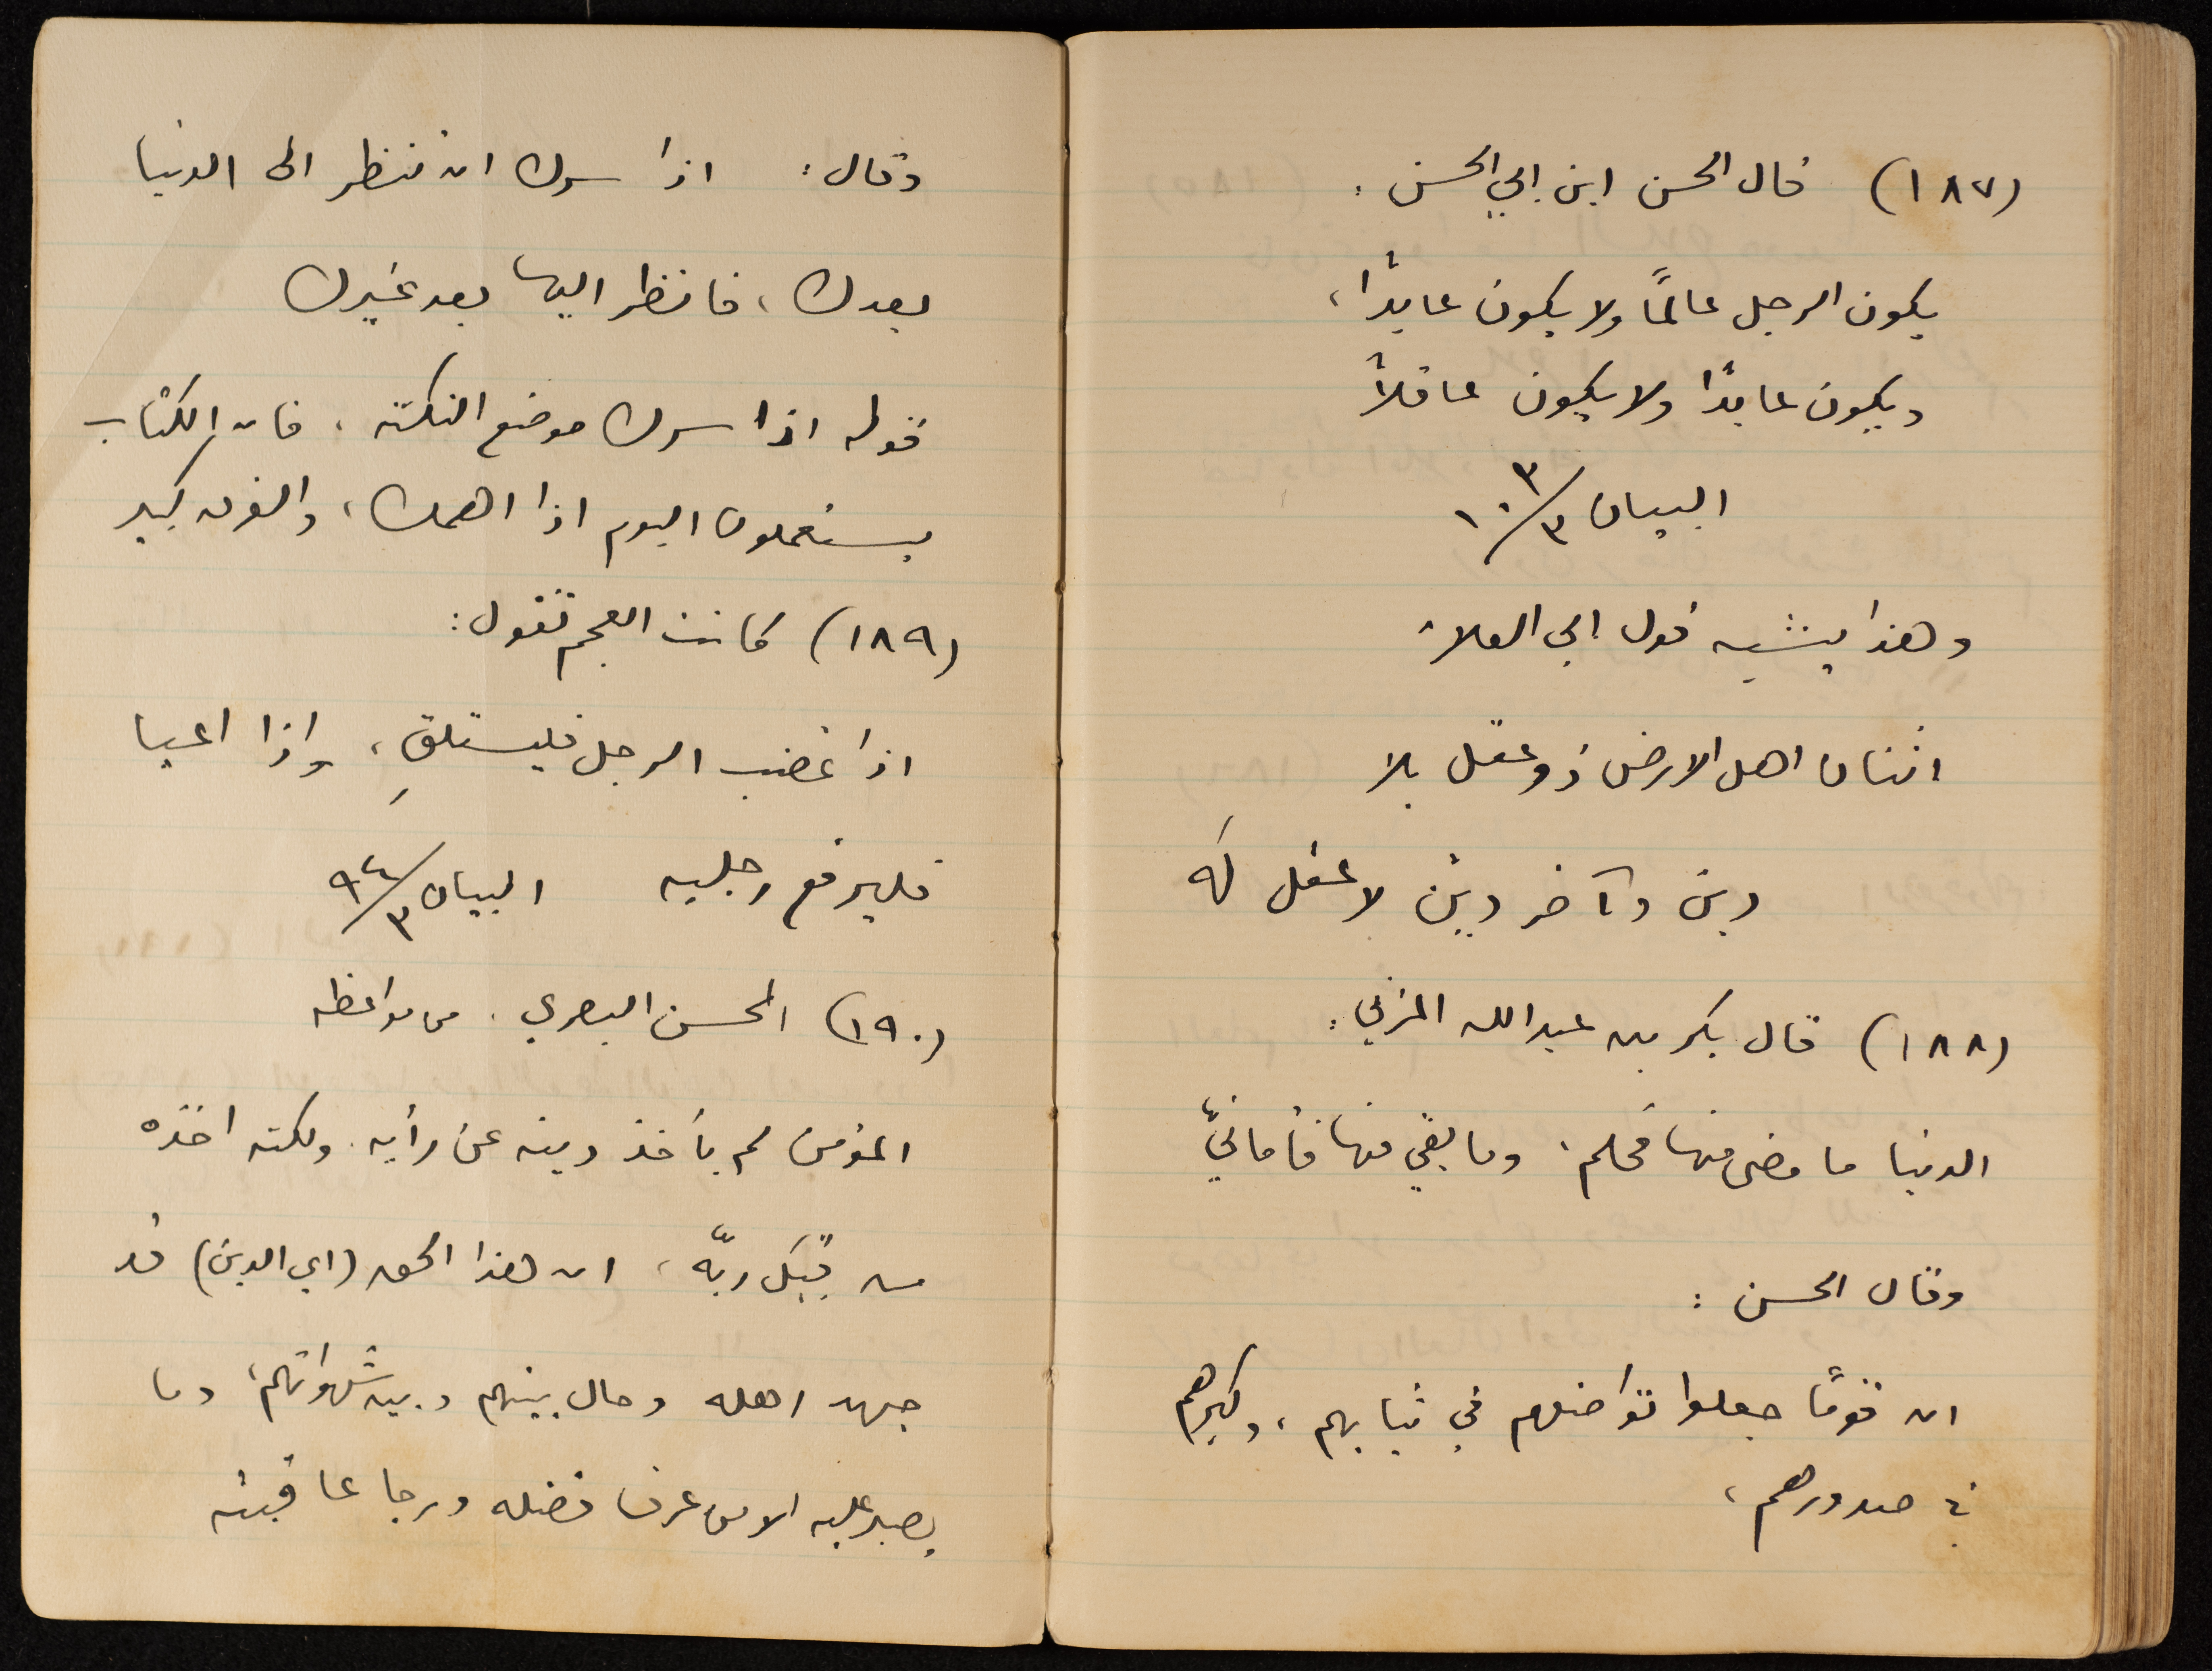 (١٨٧) قال الحسن ابن ابي الحسن :
يكون الرجل عالمًا ولا يكون عابدًا ،
ويكون عابدًا ولا يكون عاقلاً
البيان ٣/١٠٣
وهذا يشبه قول ابي العلاء
اثنان اهل الارض ذو عقل بلا
دين وآخر ديّن لا عقل له
(١٨٨) قال بكر بن عبدالله المزني :
الدنيا ما مضى منها فحلم ، وما بقي منها فأمانيّ
وقال الحسن :
ان قومًا جعلوا تواضعهم في ثيابهم ، وكبرهم
في صدورهم ،
وقال : اذا سرك ان تنظر الى الدنيا
بعدك ، فانظر اليها بعد غيرك
قوله اذا سرك موضع النكتة ، فان الكتاب
يستعملون اليوم اذا اهمك ، والفرق كبير
(١٨٩) كانت العجم تقول :
اذا غضب الرجل فليستلقِ ، واذا اعيا
فليرفع رجليه البيان ٣/٩٤
(١٩٠) الحسن البصري . من مواعظه
المؤمن لم يأخذ دينه عن رأيه . ولكنه اخذه
من قِبَل ربّه ، ان هذا الحق (اي الدين) قد
جهد اهله وحال بينهم وبين شهواتهم ، وما
يصبر عليه الا من عرف فضله ورجا عاقبته